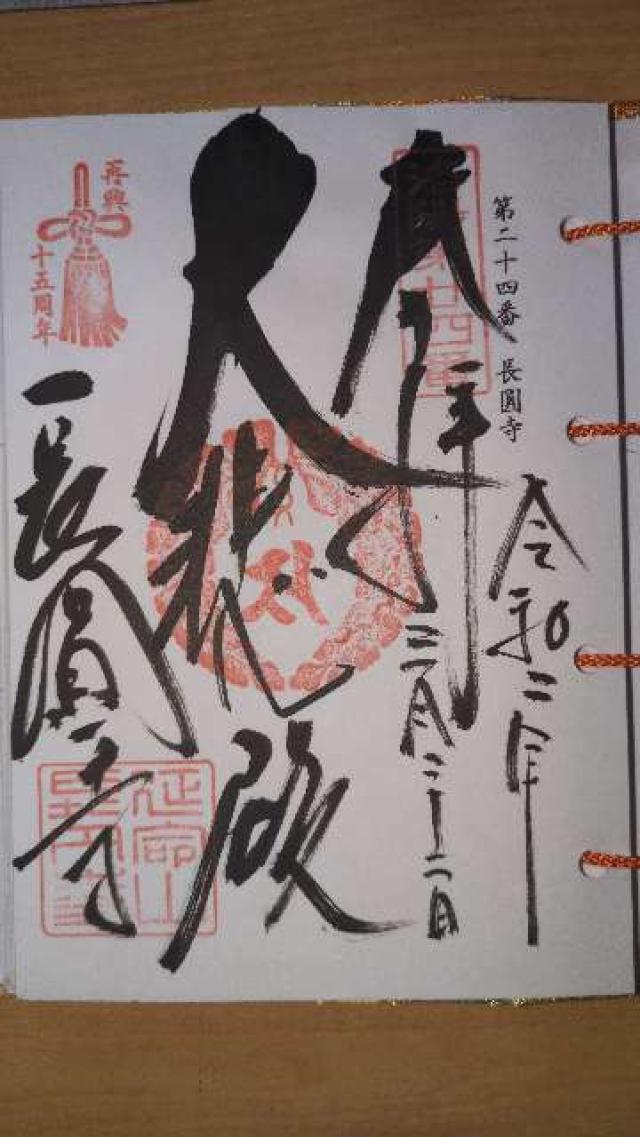 第二十四番 長圓寺
令和二年
三月二十二日
奉拝
大悲殿
長圓寺
再興
十五周年
延命山